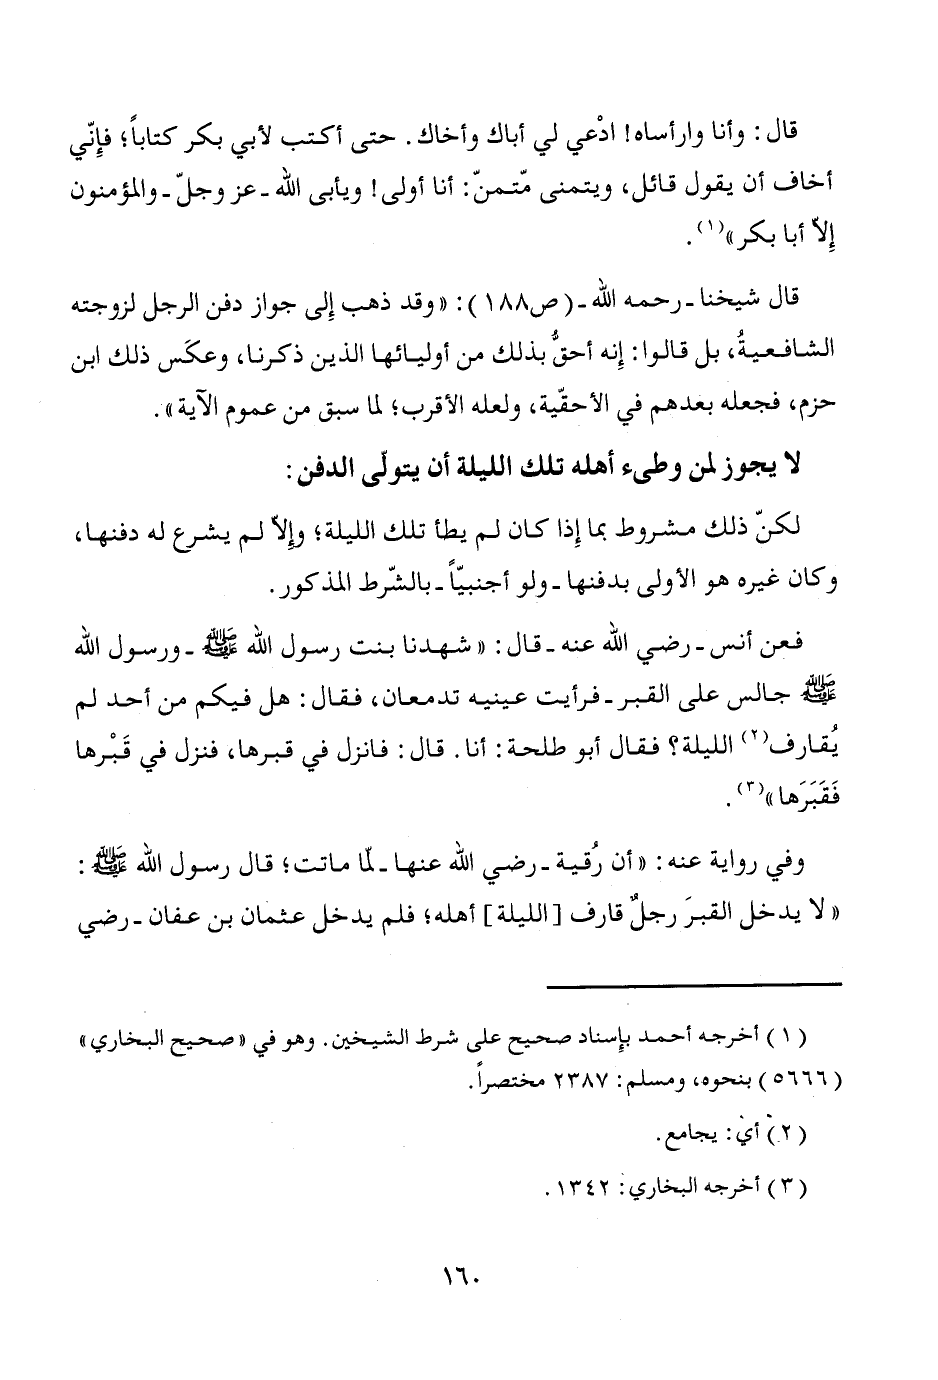 قال: وأنا وارأساه! ادْعي لي أباك وأخاك. حتى أكتب لأبي بكر كتاباً؛ فإِنّي
أخاف أن يقول قائل، ويتمنى مّتمنّ: أنا أولى! ويأبى الله ـ عز وجلّ ـ والمؤمنون
إِلاّ أبا بكر»(١).
قال شيخنا ـ رحمه الله ـ (ص١٨٨): «وقد ذهب إِلى جواز دفن الرجل لزوجته
الشافعيةُ، بل قالوا: إِنه أحقُّ بذلك من أوليائها الذين ذكرنا، وعكَس ذلك ابن
حزم، فجعله بعدهم في الأحقّية، ولعله الأقرب؛ لما سبق من عموم الآية».
لا يجوز لمن وطىء أهله تلك الليلة أن يتولّى الدفن:
لكنّ ذلك مشروط بما إِذا كان لم يطأ تلك الليلة؛ وإِلاّ لم يشرع له دفنها،
وكان غيره هو الأولى بدفنها ـ ولو أجنبيّاً ـ بالشّرط المذكور.
فعن أنس ـ رضي الله عنه ـ قال: «شهدنا بنت رسول الله ﷺ ـ ورسول الله
ﷺ جالس على القبر ـ فرأيت عينيه تدمعان، فقال: هل فيكم من أحد لم
يُقارف(٢) الليلة؟ فقال أبو طلحة: أنا. قال: فانزل في قبرها، فنزل في قَبْرها
فَقَبَرَها»(٣).
وفي رواية عنه: «أن رُقية ـ رضي الله عنها ـ لمّا ماتت؛ قال رسول الله ﷺ:
«لا يدخل القبرَ رجلٌ قارف [الليلة] أهله؛ فلم يدخل عثمان بن عفان ـ رضي
(١) أخرجه أحمد بإِسناد صحيح على شرط الشيخين. وهو في «صحيح البخاري»
(٥٦٦٦) بنحوه، ومسلم: ٢٣٨٧ مختصراً.
(٢) أي: يجامع.
(٣) أخرجه البخاري: ١٣٤٢.
١٦٠